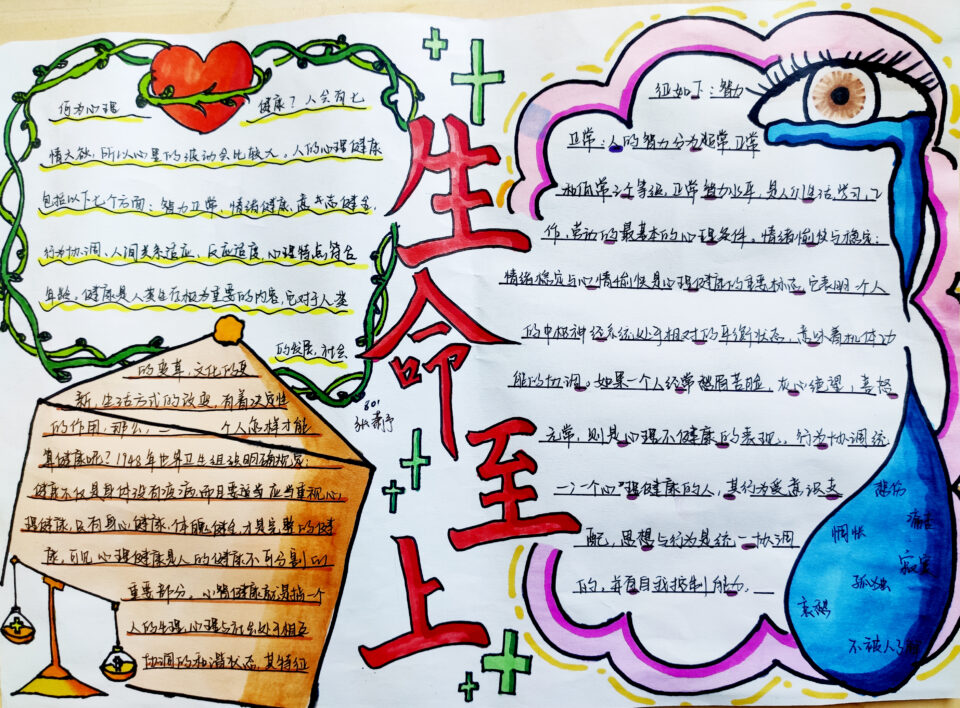 何为心理 健康？人会有七
情六欲，所以心里的波动会比较大。人的心理健康
包括以下七个方面：智力正常、情绪健康、意志健全、
行为协调、人间关系适应、反应适度、心理特点符合
年龄。健康是人类生存极为重要的内容，它对于人类
的发展，社会
的变革，文化的更
新，生活方式的改变，有着决定性
的作用，那么，一 个人怎样才能
算健康呢？1948年世界卫生组织明确规定：
健康不仅是身体没有疾病，而且要适当应当重视心
理健康，只有身心健康、体魄健全，才是完整的健
康，可见，心理健康是人的健康不可分割的
重要部分，心理健康就是指一个
人的生理、心理与社会处于相互
协调的和谐状态，其特征
601
生命至上
征如下：智力
正常：人的智力分为超常、正常
和低常三个等级，正常智力水平，是人们生活、学习、工
作、劳动的最基本的心理条件。情绪愉快与稳定：
情绪稳定与心情愉快是心理健康的重要标志，它表明一个人
的中枢神经系统处于相对的平衡状态，意味着机体功
能的协调。如果一个人经常愁眉苦脸、灰心绝望、喜怒
无常，则是心理不健康的表现。行为协调统
一：一个心理健康的人，其行为受意识支
配，思想与行为是统一协调
的，并有自我控制能力。
悲伤
痛苦
惆怅
寂寞
孤独
哀愁
不被人了解